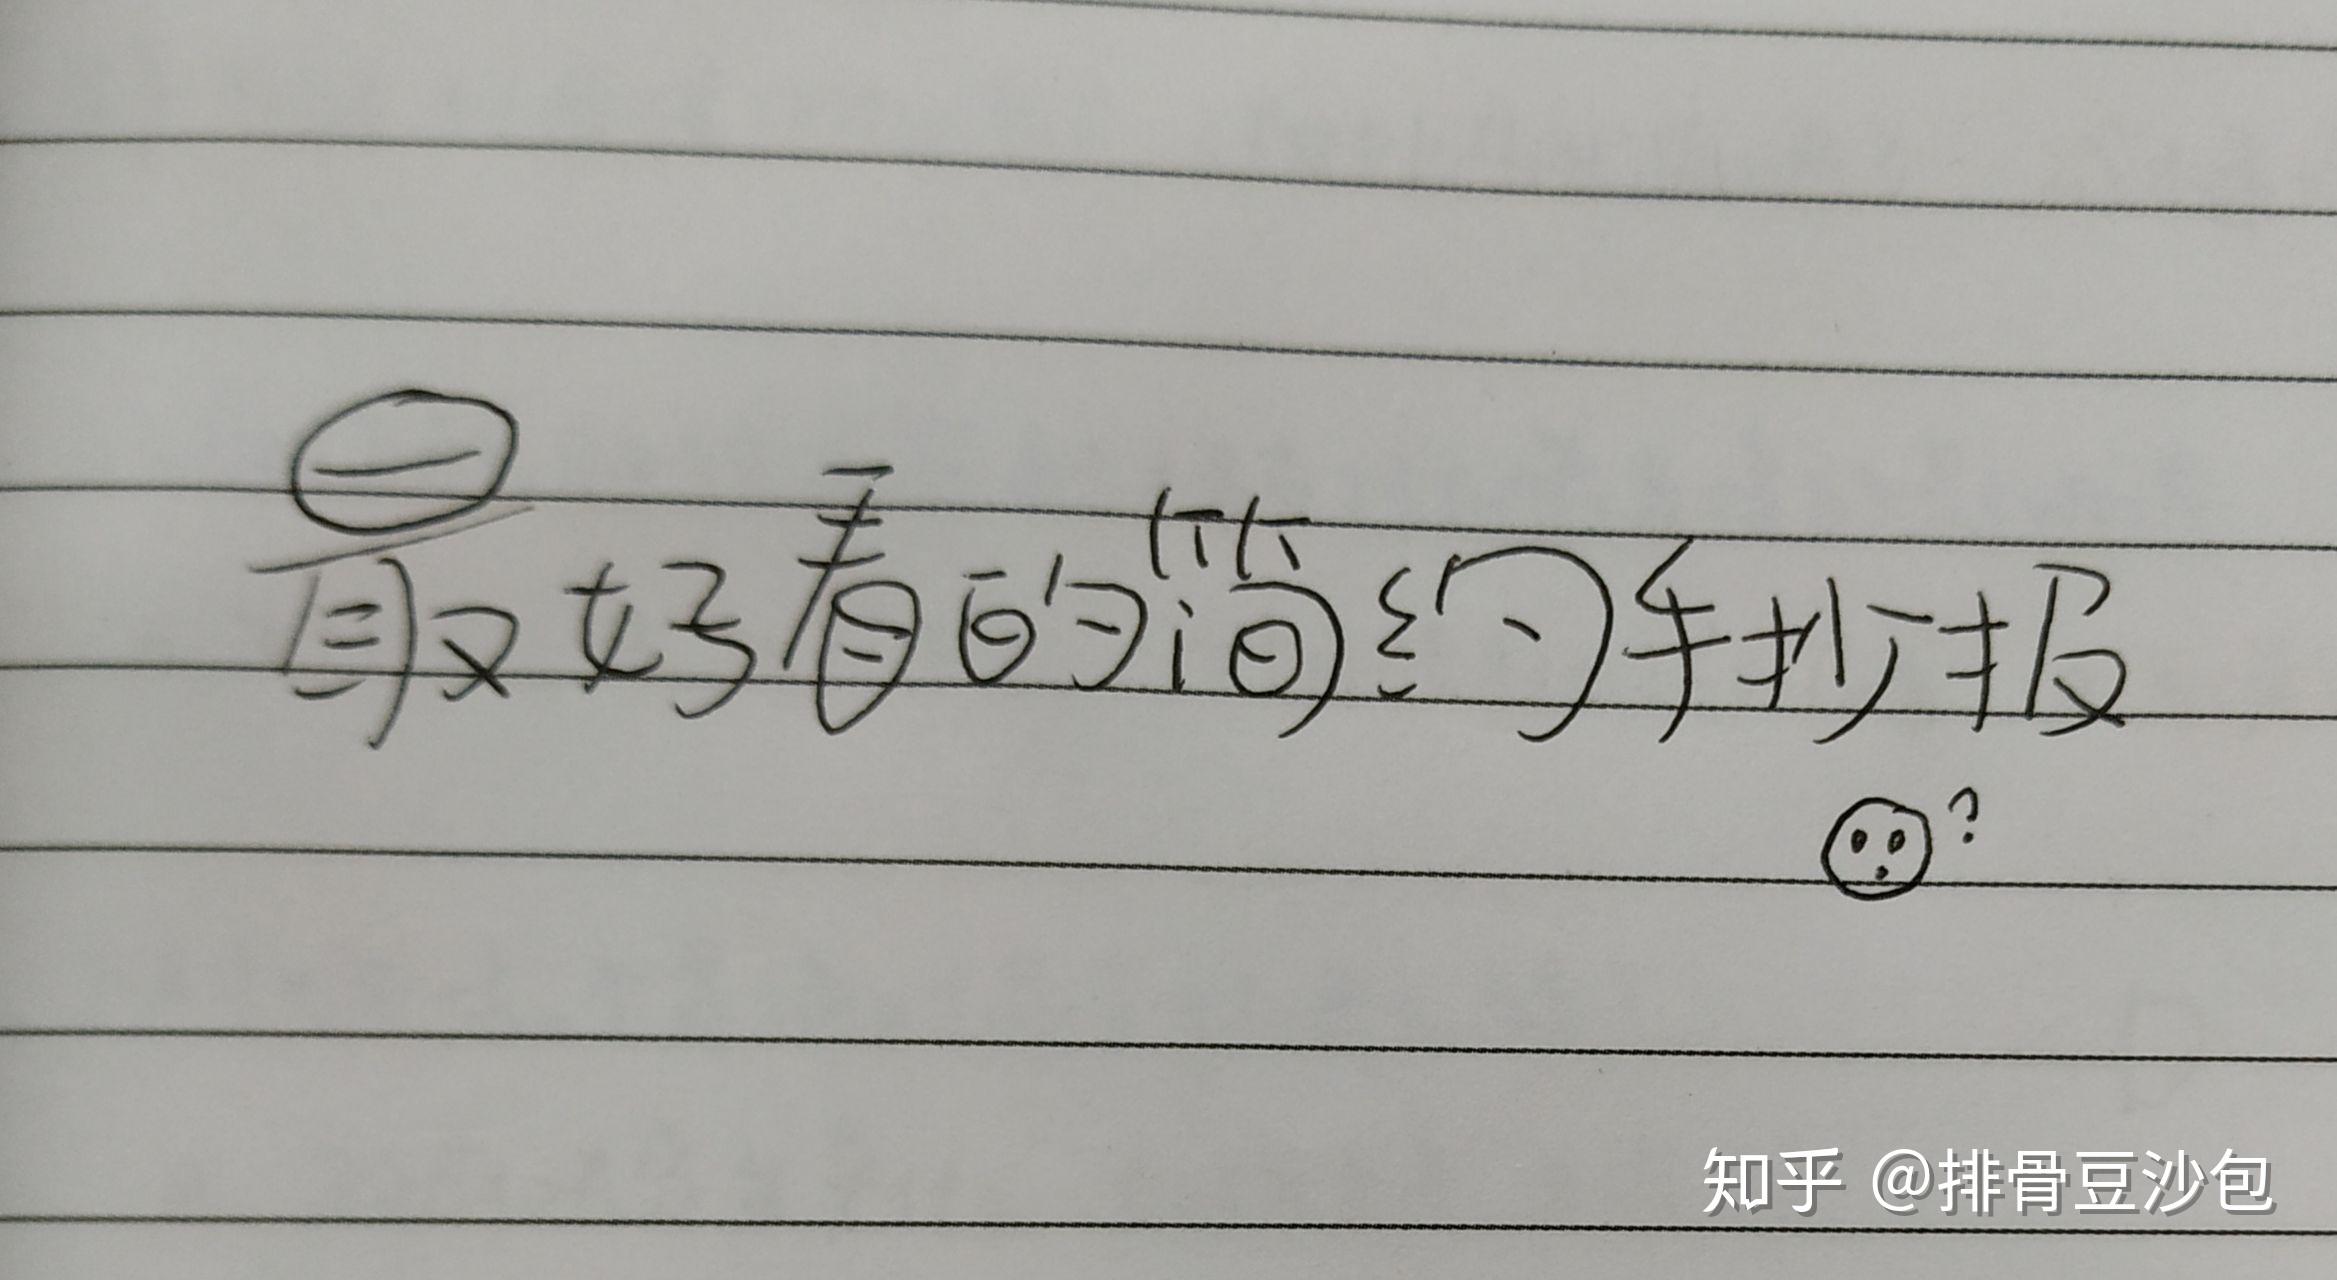 最好看的简约手抄报
?
知乎 @排骨豆沙包